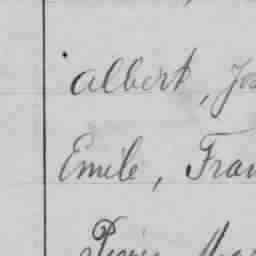 Albert, Jos
Emile, Fran
Pierre Mar